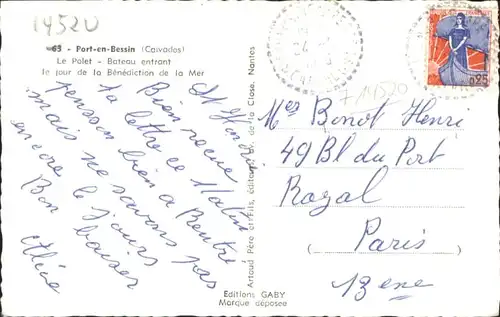 14520
63 - Port-en-Bessin (Calvados)
Le Polet - Bateau entrant
le jour de la Bénédiction de la Mer
Bien reçue
ta lettre ce Matin
pensson bien a Rentré
mais ne savons pas
encore le jours
Bon baiser
Artaud Père et Fils, éditeurs, de la Close, Nantes
Editions GABY
Marque déposée
0,25
+14520
Mes Benot Henri
49 Bl du Port
Royal
(Paris)
13eme